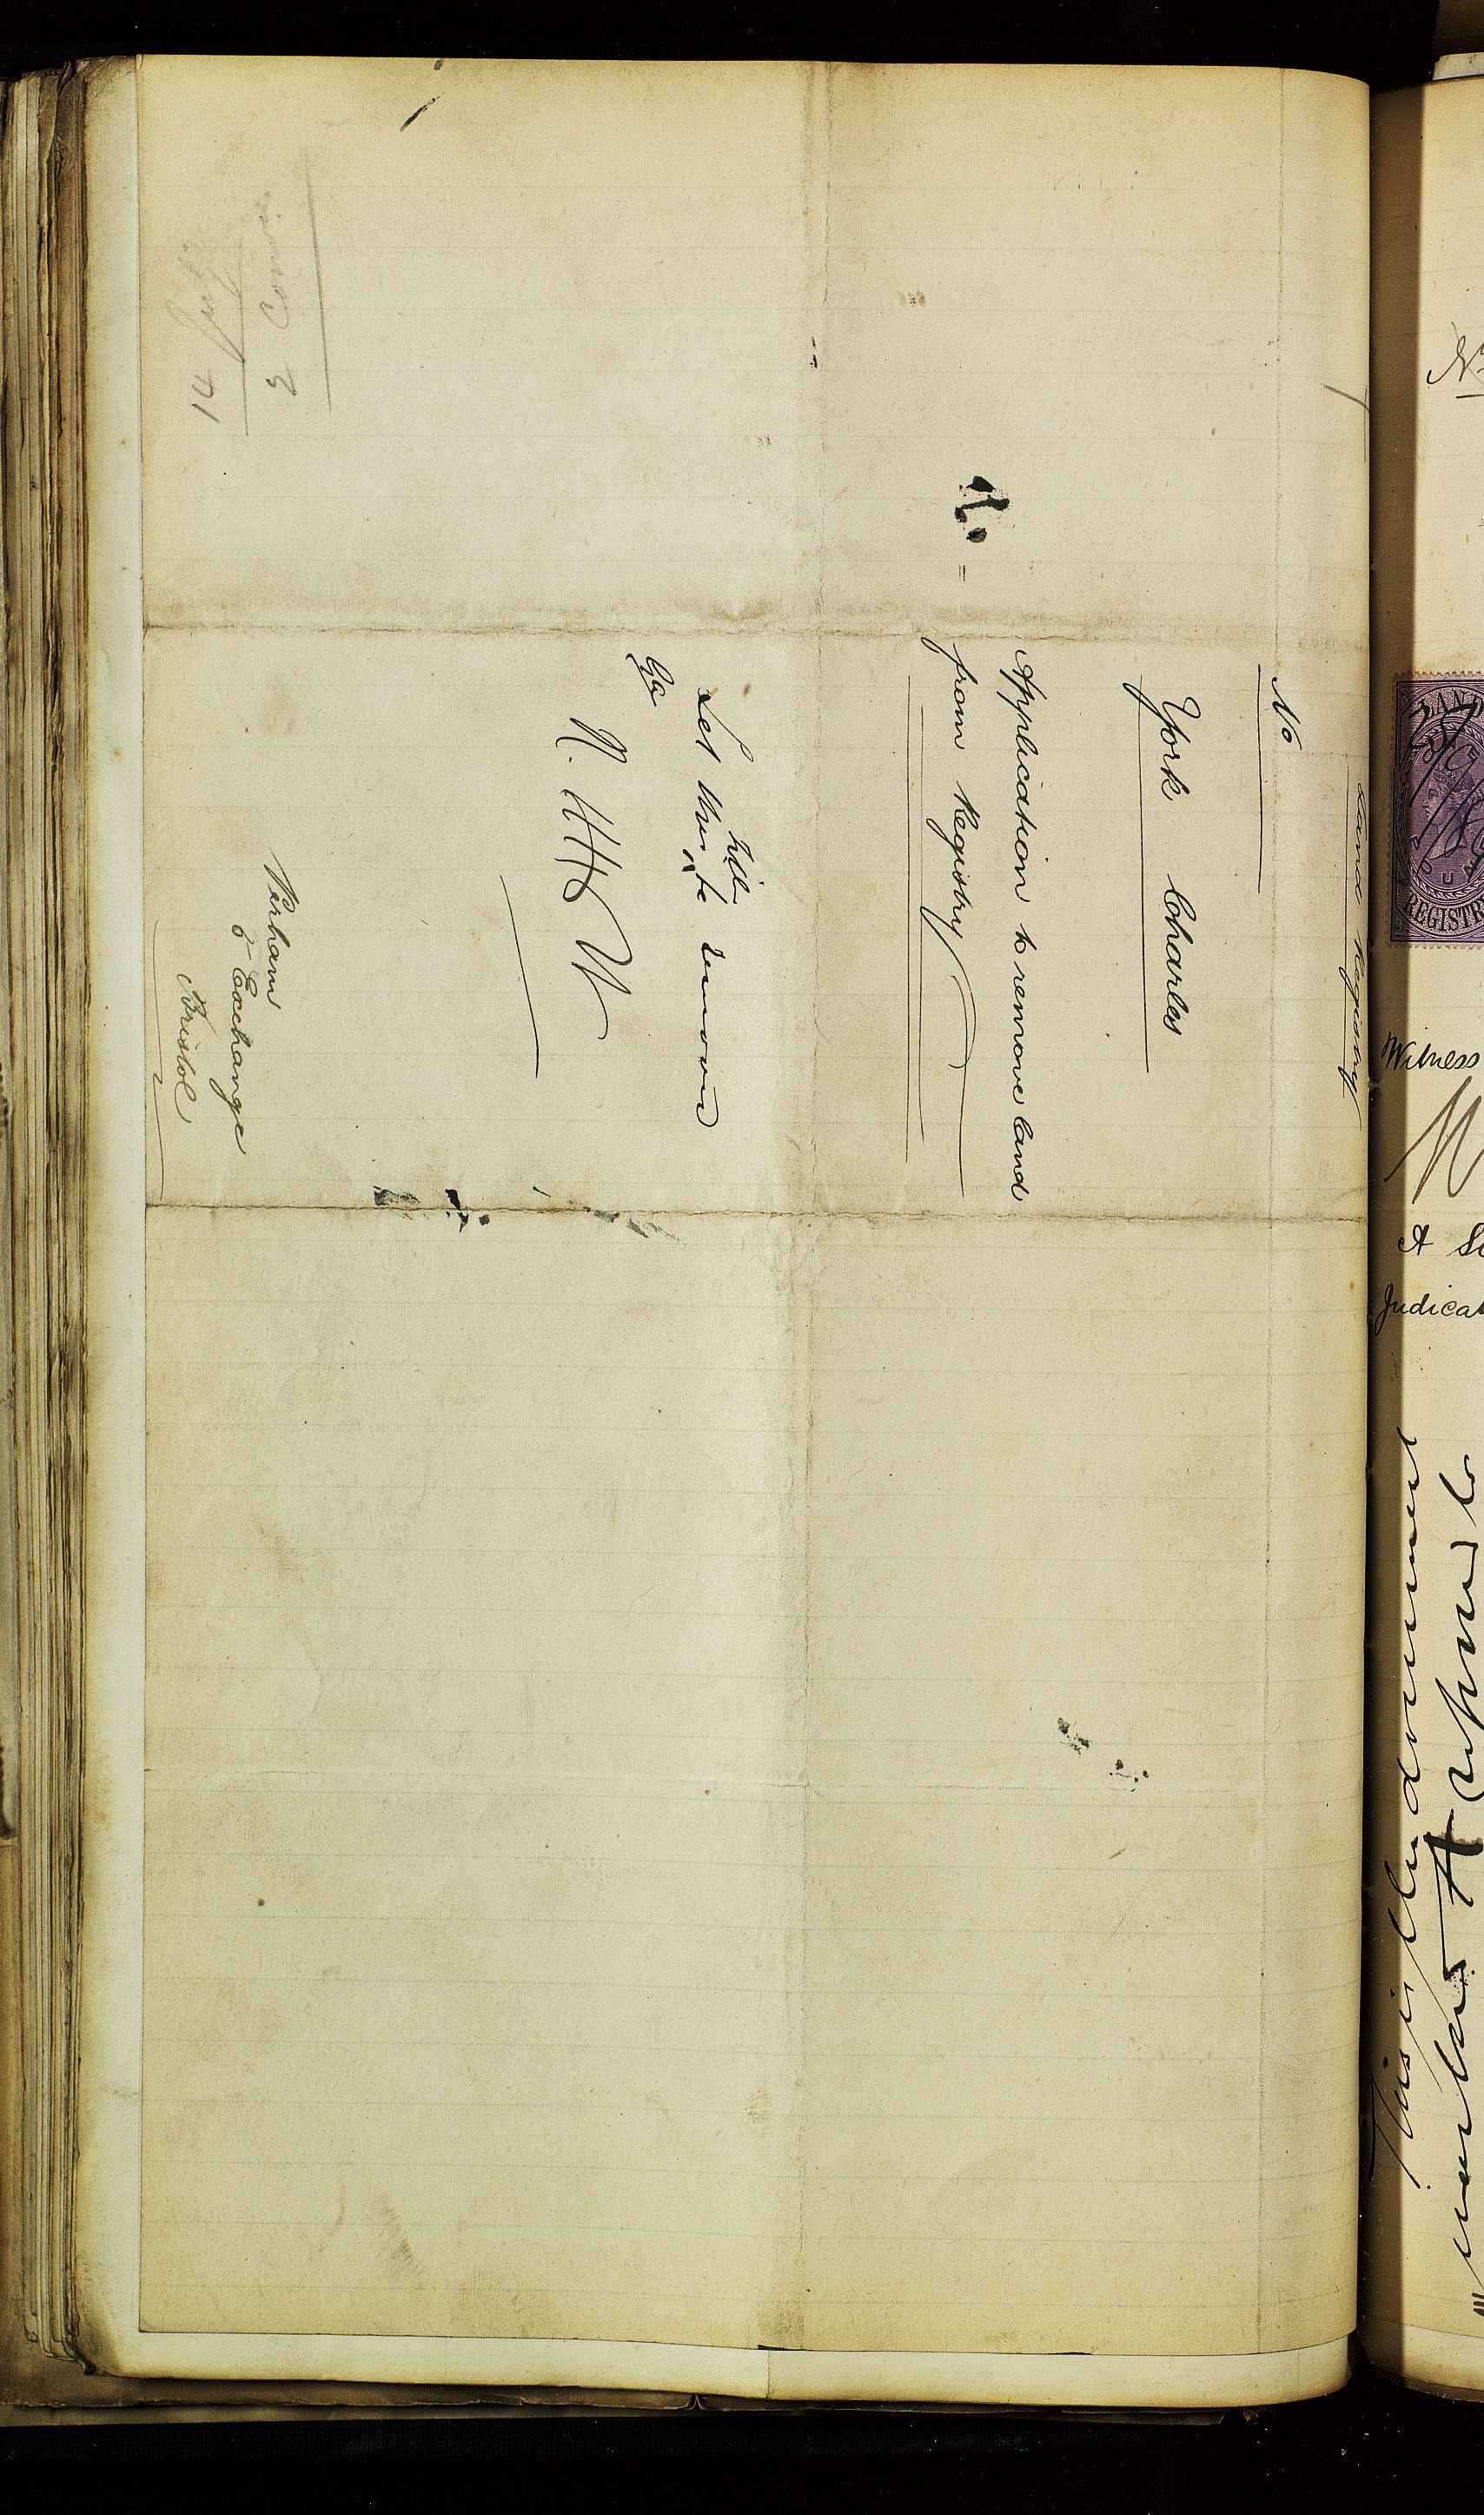 Land Registry
No
York Charles
Application to remove land
from Registry
Let this title be removed
R. H. W
Verham
Exchange
Bristol
14
REGISTR
Witness
A So
Judicat
This is the document